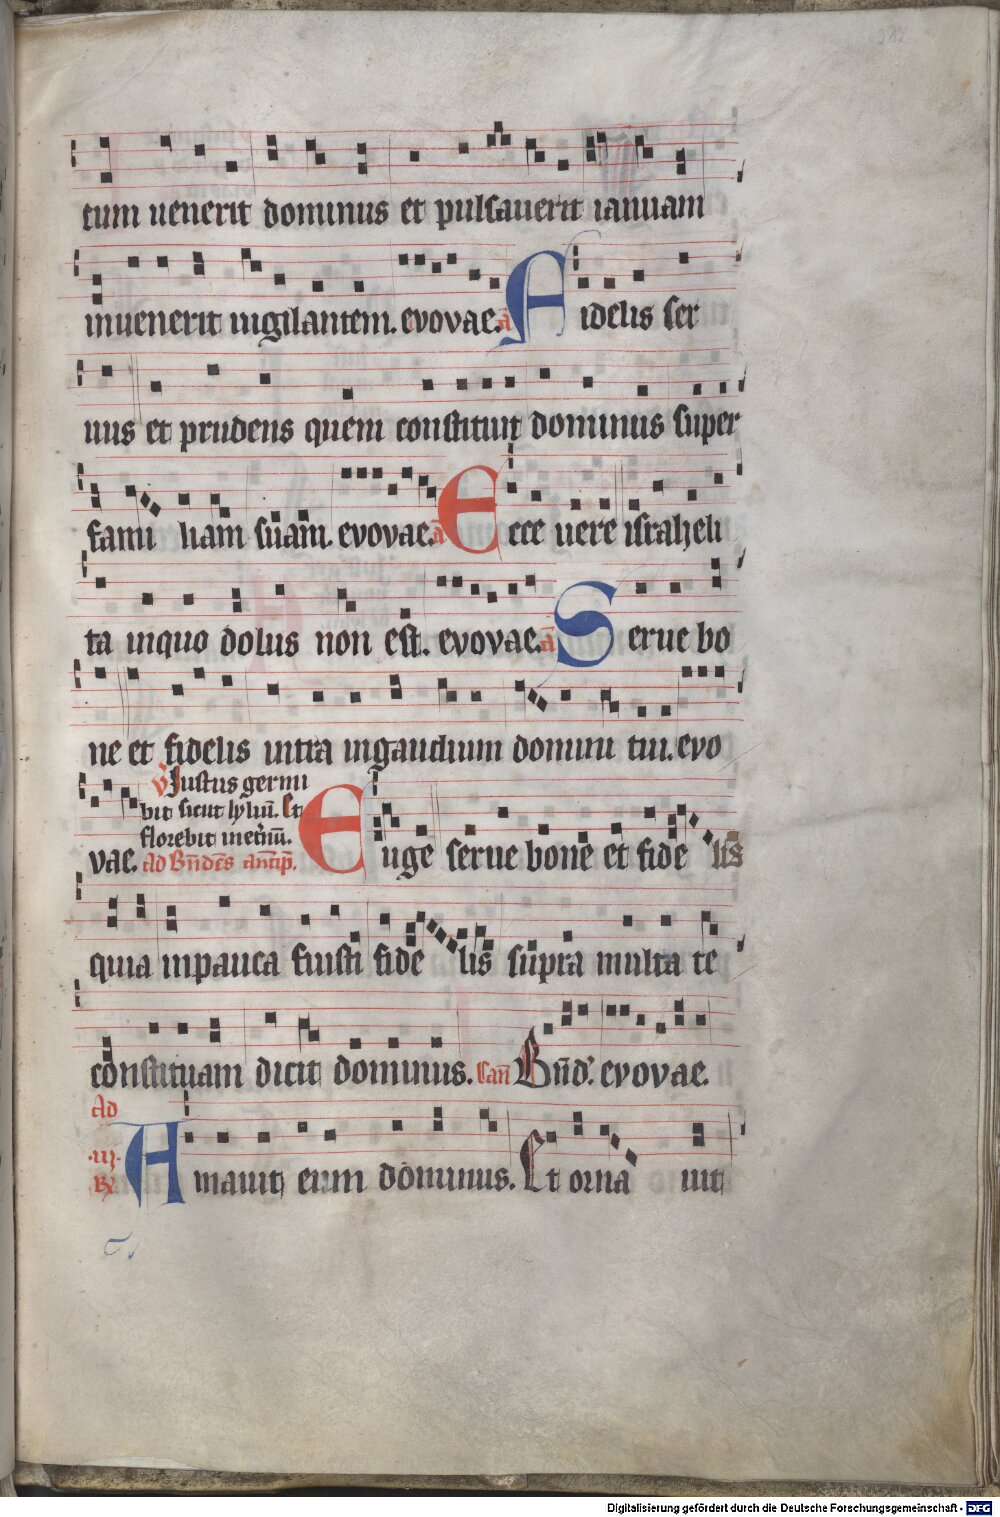 tum uenerit dominus et pulsauerit ianuam
inuenerit uigilantem. evovae. a᷃ Fidelis ser
uus et prudens quem constituit dominus super
fami liam suam. evovae. a᷃ Ecce uere israheli
ta inquo dolus non est. evovae. a᷃ Serue bo
ne et fidelis intra ingaudium domini tui. evo
℣ Justus germi
bit sicut lyliu᷃. Et
florebit inet᷃nu᷃.
vae. Ad Bn᷃dc᷃s antip᷃. Euge serue bone et fide lis
quia inpauca fuisti fide lis supra multa te
constituam dicit dominus. Can᷃ Bn᷃d᷃. evovae.
Ad
.iii.
℟ Amauit eum dominus. Et orna uit
Digitalisierung gefördert durch die Deutsche Forschungsgemeinschaft - DFG